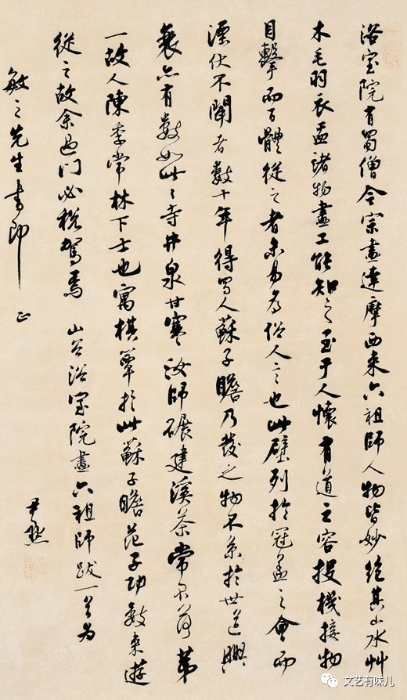 浴室院有蜀僧令宗畫達摩西來六祖師人物皆妙絕其山水艸
木毛羽衣盂諸物畫工能知之至于人懷有道之容投機接物
目擊而百體從之者未易為俗人言也此壁列於冠蓋之會而
湮伏不聞者數十年得蜀人蘇子瞻乃發之物不系於世道興
衰亦有數如此々寺井泉甘寒汶師碾建溪茶常不落第
一故人陳季常林下士也寓棋簟於此蘇子瞻范子功數來遊
從之故余過門必稅駕焉 山谷浴室院畫六祖師跋一首為
敏之先生書即正
尹默
文艺有味儿